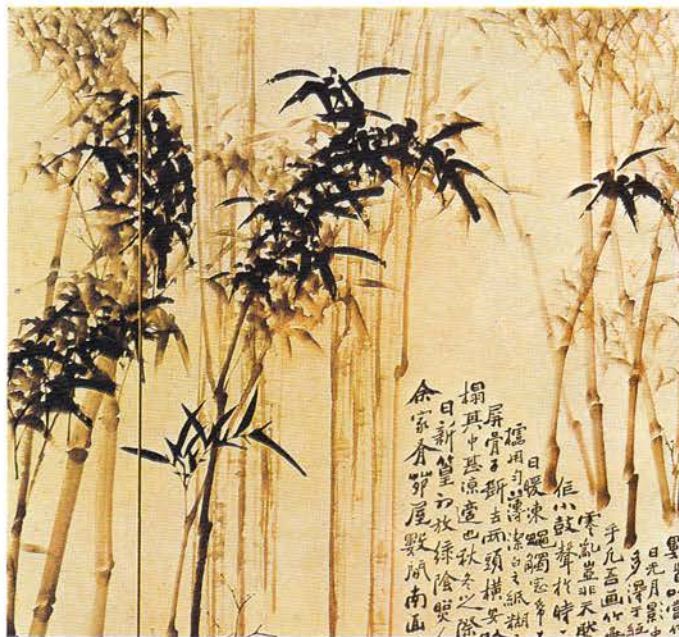 余家有茆屋數間南面
日新篁初放綠陰照
榻其中甚涼適也秋冬之際
屏骨子斷去兩頭橫安
櫺用匀薄潔白之紙糊
日暖凍蠅觸窓帋
作小鼓聲於時
零亂豈非天然
乎凡吾画竹
多得于紙
日光月影